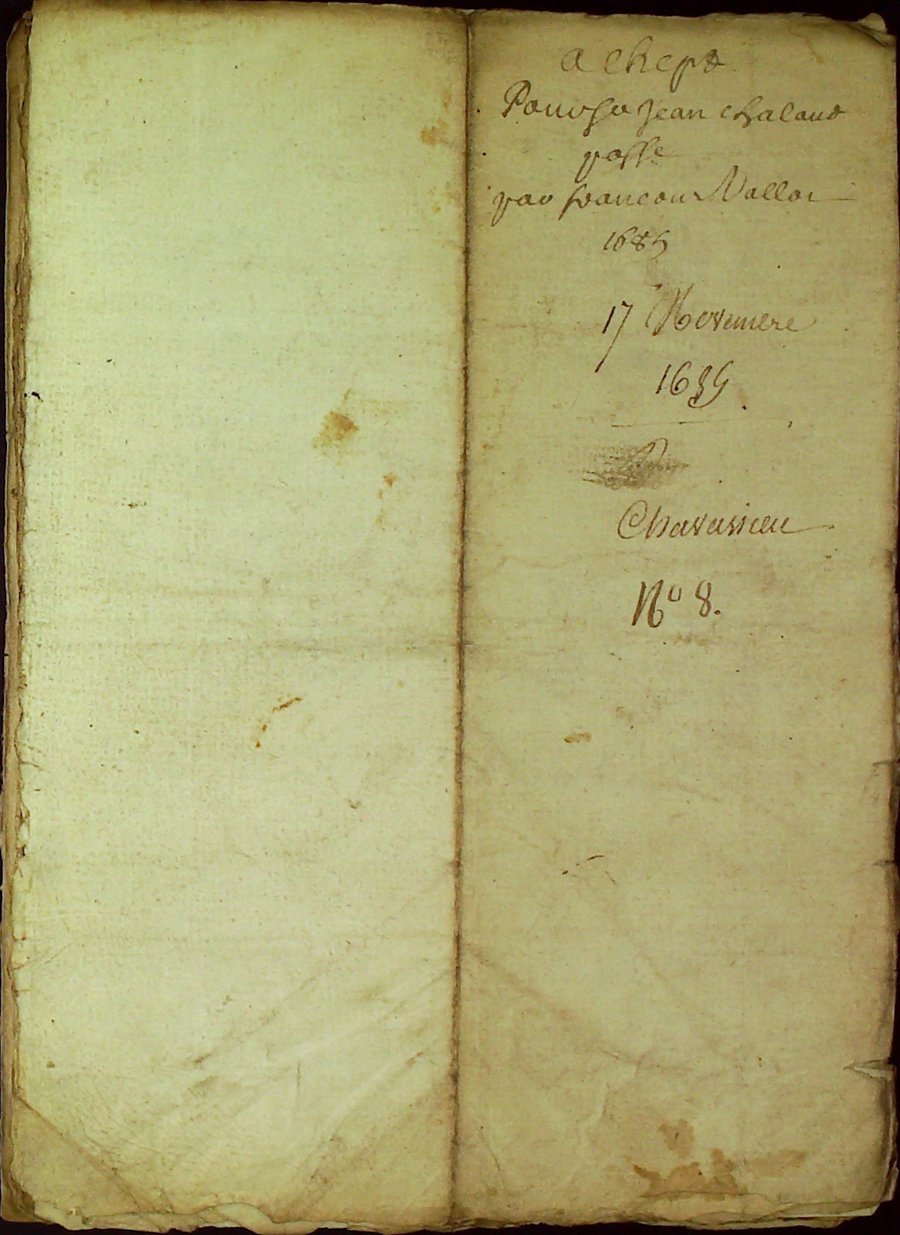 achept
Pour Sr Jean chaland
passé
par francois Valloi
1689
17 Novembre
1689
Chavassieu
No 8.